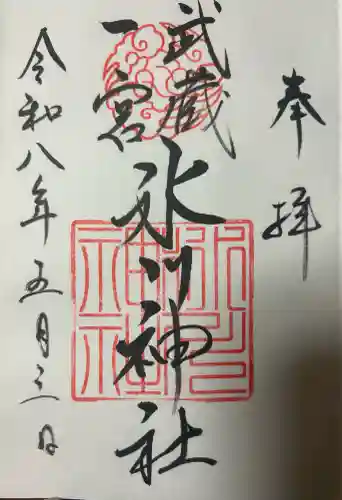 奉拝
武蔵
一宮
氷川神社
令和八年五月三日
氷川神社